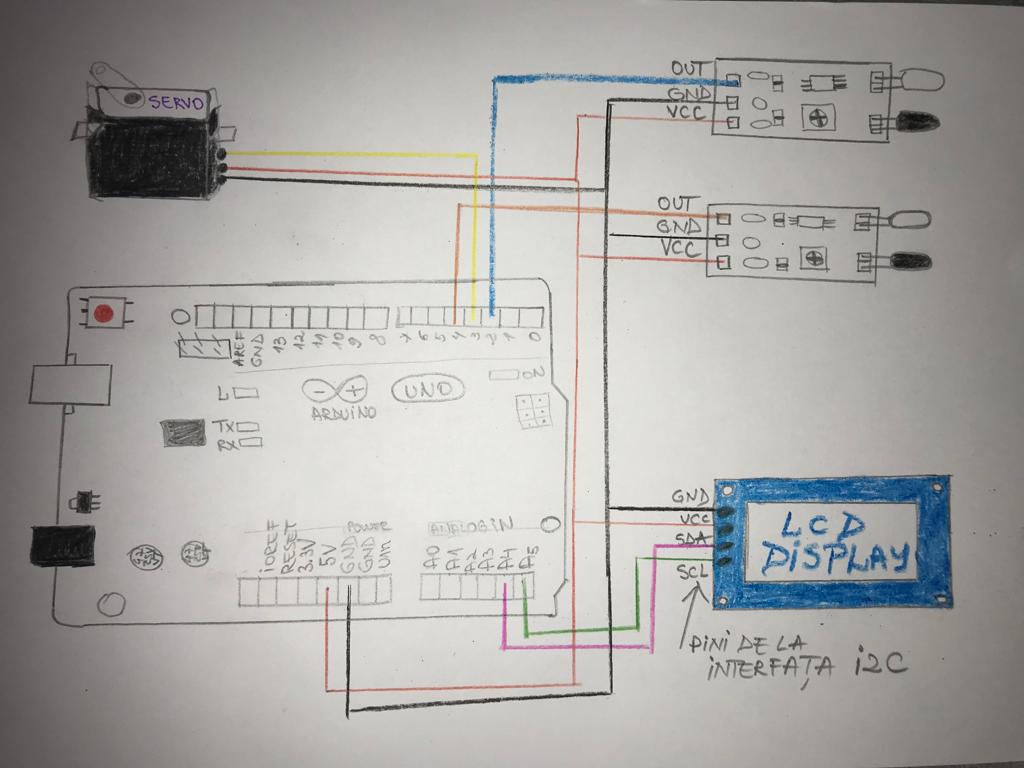 SERVO
OUT
GND
VCC
OUT
GND
VCC
AREF
GND
13
12
11
10
9
8
7
6
5
4
3
2
1
0
L
TX
RX
ARDUINO
UNO
ON
POWER
IOREF
RESET
3.3V
5V
GND
GND
Vin
ANALOG IN
A0
A1
A2
A3
A4
A5
GND
VCC
SDA
SCL
LCD
DISPLAY
PINI DE LA
INTERFAȚA i2C